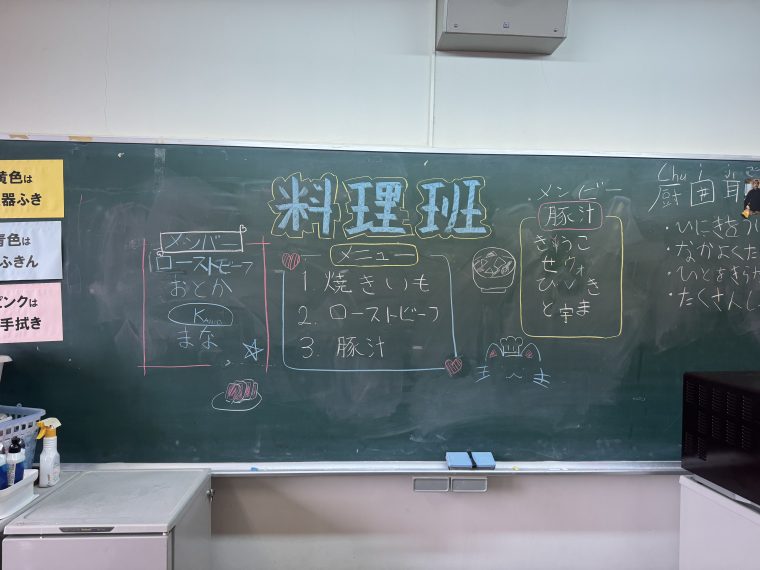 黄色は
器ふき
青色は
ふきん
ピンクは
手拭き
料理班
メンバー
ローストビーフ
おとか
まな
メニュー
1. 焼きいも
2. ローストビーフ
3. 豚汁
メンバー
豚汁
きょうこ
と宇ま
Chu
厨
・なかよくた
・たくさんし